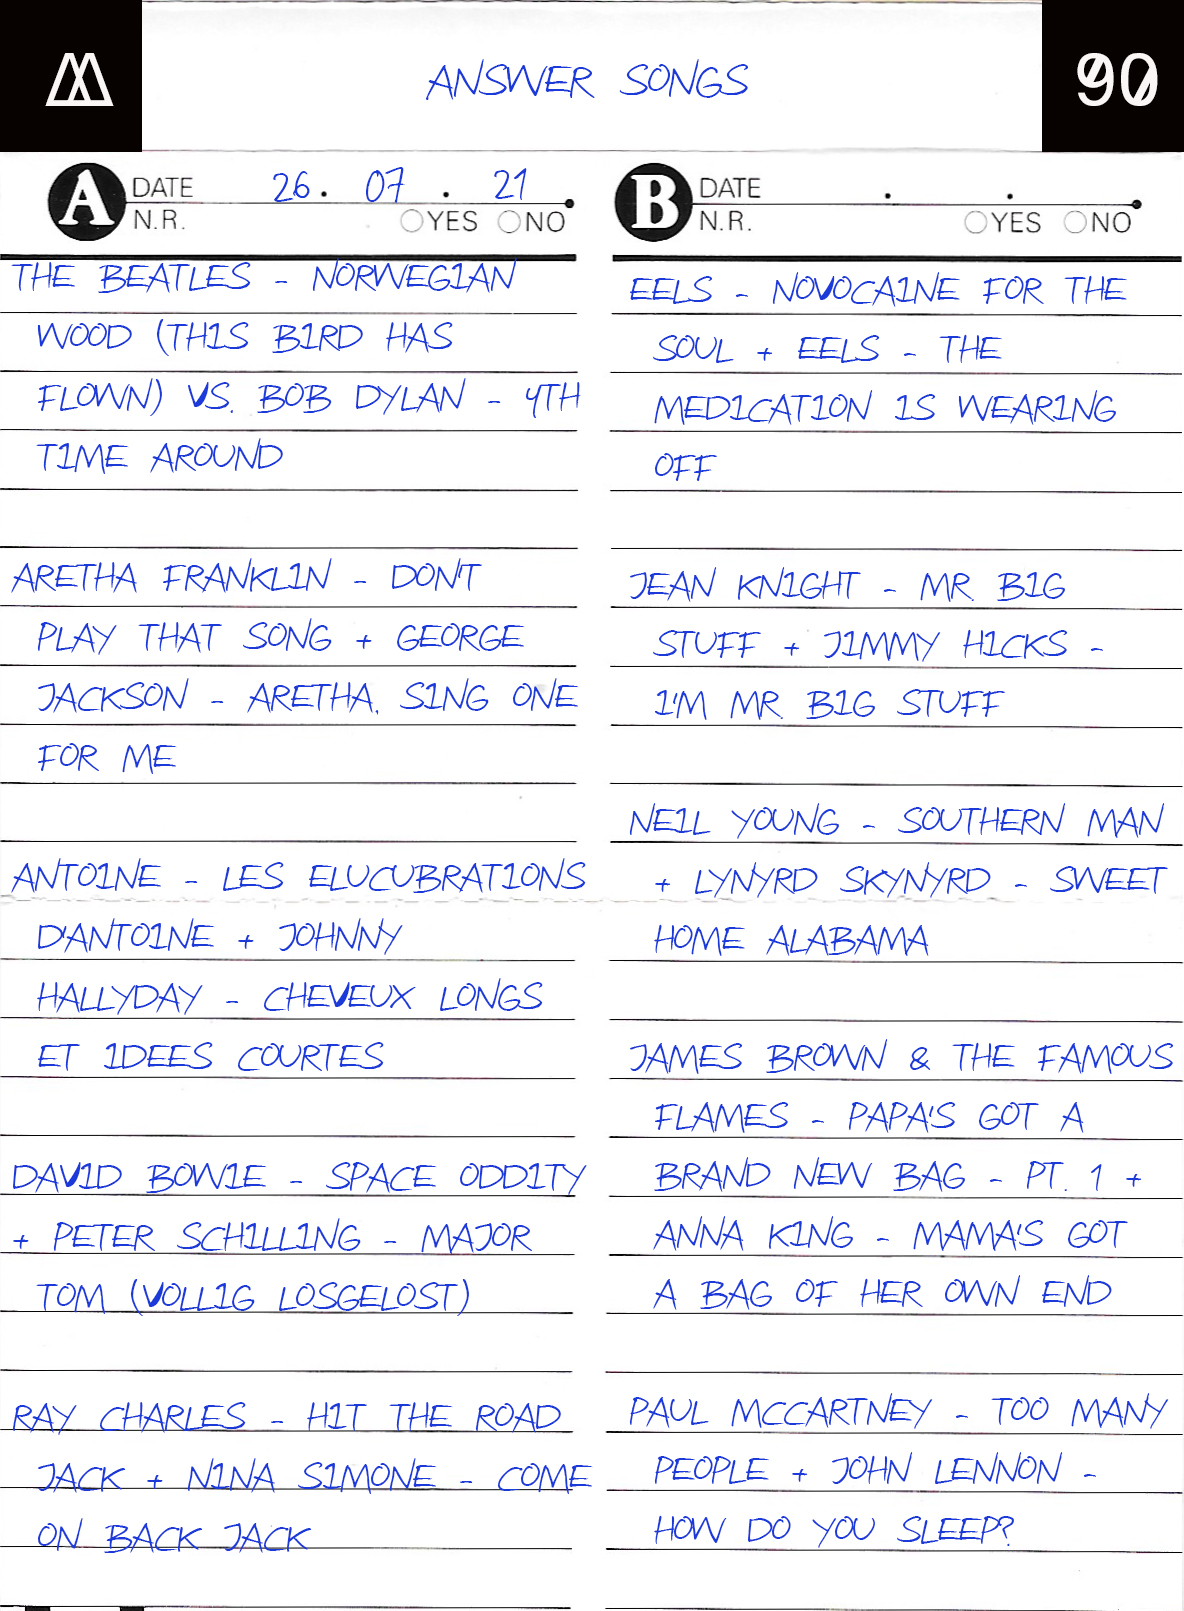 ANSWER SONGS
90
A DATE 26. 07. 21
N.R. YES NO
THE BEATLES - NORWEGIAN
WOOD (THIS BIRD HAS
FLOWN) VS. BOB DYLAN - 4TH
TIME AROUND
ARETHA FRANKLIN - DON'T
PLAY THAT SONG + GEORGE
JACKSON - ARETHA, SING ONE
FOR ME
ANTOINE - LES ELUCUBRATIONS
D'ANTOINE + JOHNNY
HALLYDAY - CHEVEUX LONGS
ET IDEES COURTES
DAVID BOWIE - SPACE ODDITY
+ PETER SCHILLING - MAJOR
TOM (VOLLIG LOSGELOST)
RAY CHARLES - HIT THE ROAD
JACK + NINA SIMONE - COME
ON BACK JACK
B DATE . .
N.R. YES NO
EELS - NOVOCAINE FOR THE
SOUL + EELS - THE
MEDICATION IS WEARING
OFF
JEAN KNIGHT - MR. BIG
STUFF + JIMMY HICKS -
I'M MR. BIG STUFF
NEIL YOUNG - SOUTHERN MAN
+ LYNYRD SKYNYRD - SWEET
HOME ALABAMA
JAMES BROWN & THE FAMOUS
FLAMES - PAPA'S GOT A
BRAND NEW BAG - PT. 1 +
ANNA KING - MAMA'S GOT
A BAG OF HER OWN END
PAUL MCCARTNEY - TOO MANY
PEOPLE + JOHN LENNON -
HOW DO YOU SLEEP?